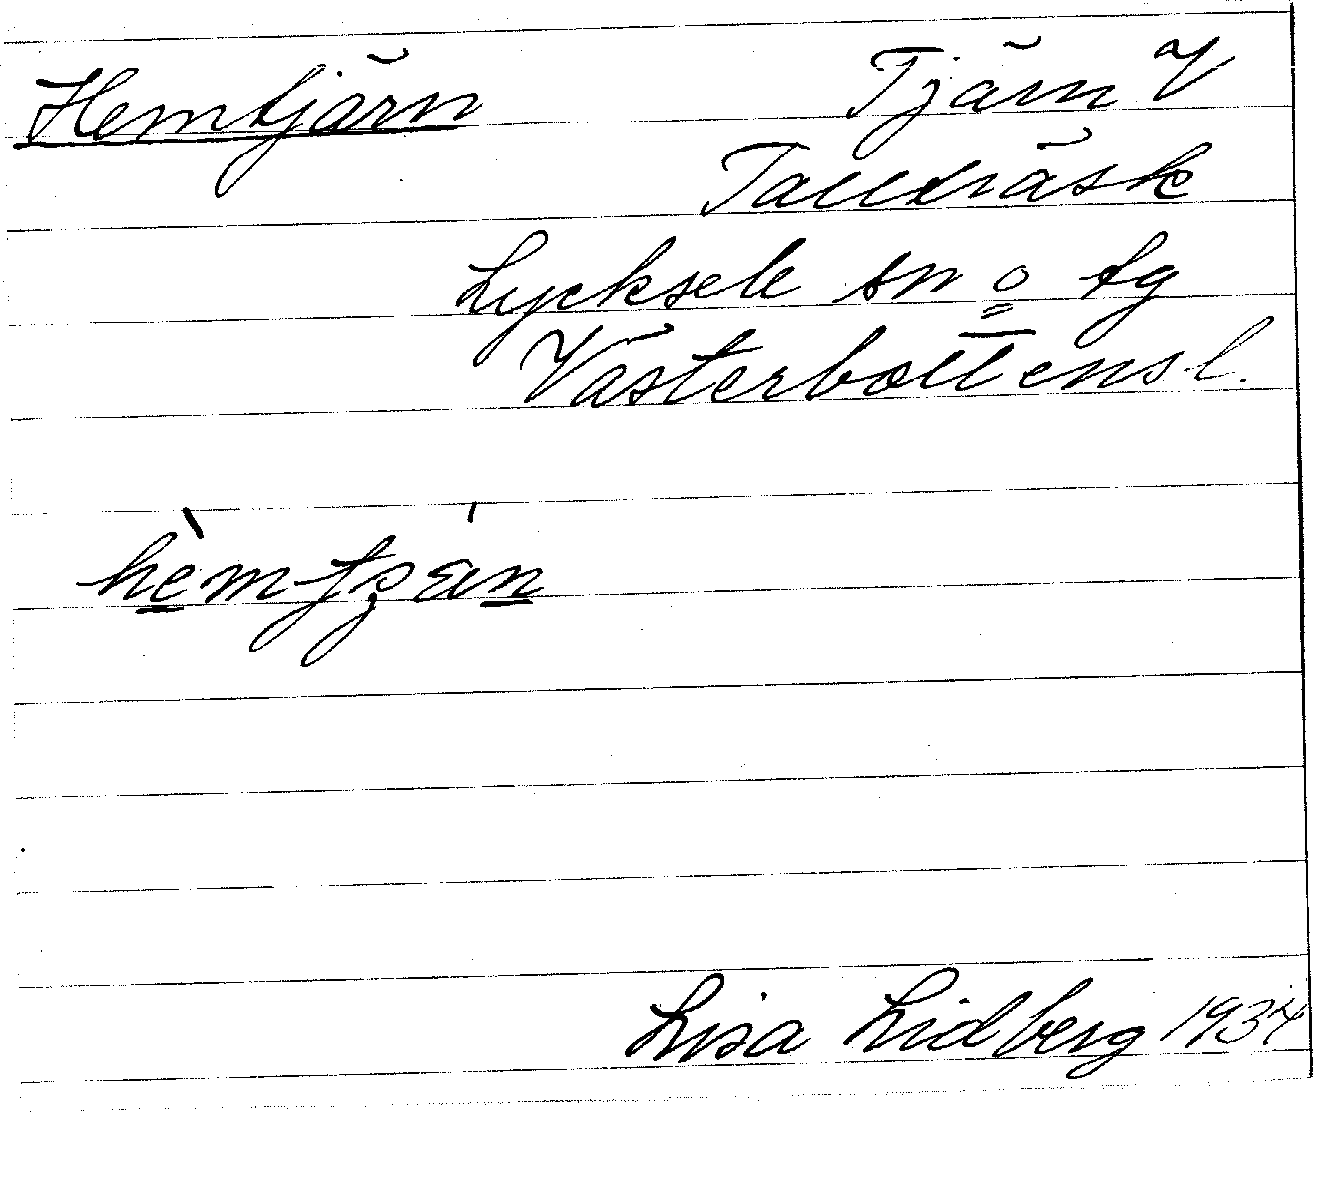 Hemtjärn Tjärn V
Tallträsk
Lycksele sn o tg
Västerbottensl.
Lisa Lidberg 1934